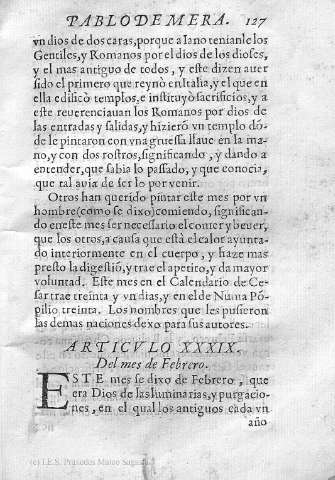 PABLO DE MERA. 127
vn dios de dos caras, porque a Iano teníanle los
Gentiles, y Romanos por el dios de los dioses,
y el mas antiguo de todos, y este dizen auer
sido el primero que reynò en Italia, y el que en
ella edificò templos, e instituyò sacrificios, y a
este reuerenciauan los Romanos por dios de
las entradas y salidas, y hizierõ vn templo dó-
de le pintaron con vna gruessa llaue en la ma-
no, y con dos rostros, significando, y dando a
entender, que sabia lo passado, y que conocia,
que tal auia de ser lo por venir.
Otros han querido pintar este mes por vn
hombre (como se dixo) comiendo, significan-
do en este mes ser necessario el comer y beuer,
que los otros, a causa que està el calor ayunta-
do interiormente en el cuerpo, y haze mas
presto la digestiõ, y trae el apetito, y da mayor
voluntad. Este mes en el Calendario de Ce-
sar trae treinta y vn dias, y en el de Numa Põ-
pilio treinta. Los nombres que les pusieron
las demas naciones dexo para sus autores.
ARTICVLO XXXIX.
Del mes de Febrero.
ESTE mes se dixo de Febrero, que
era Dios de las luminarias, y purgacio-
nes, en el qual los antiguos cada vn
año
(c) I.E.S. Práxedes Mateo Sagasta